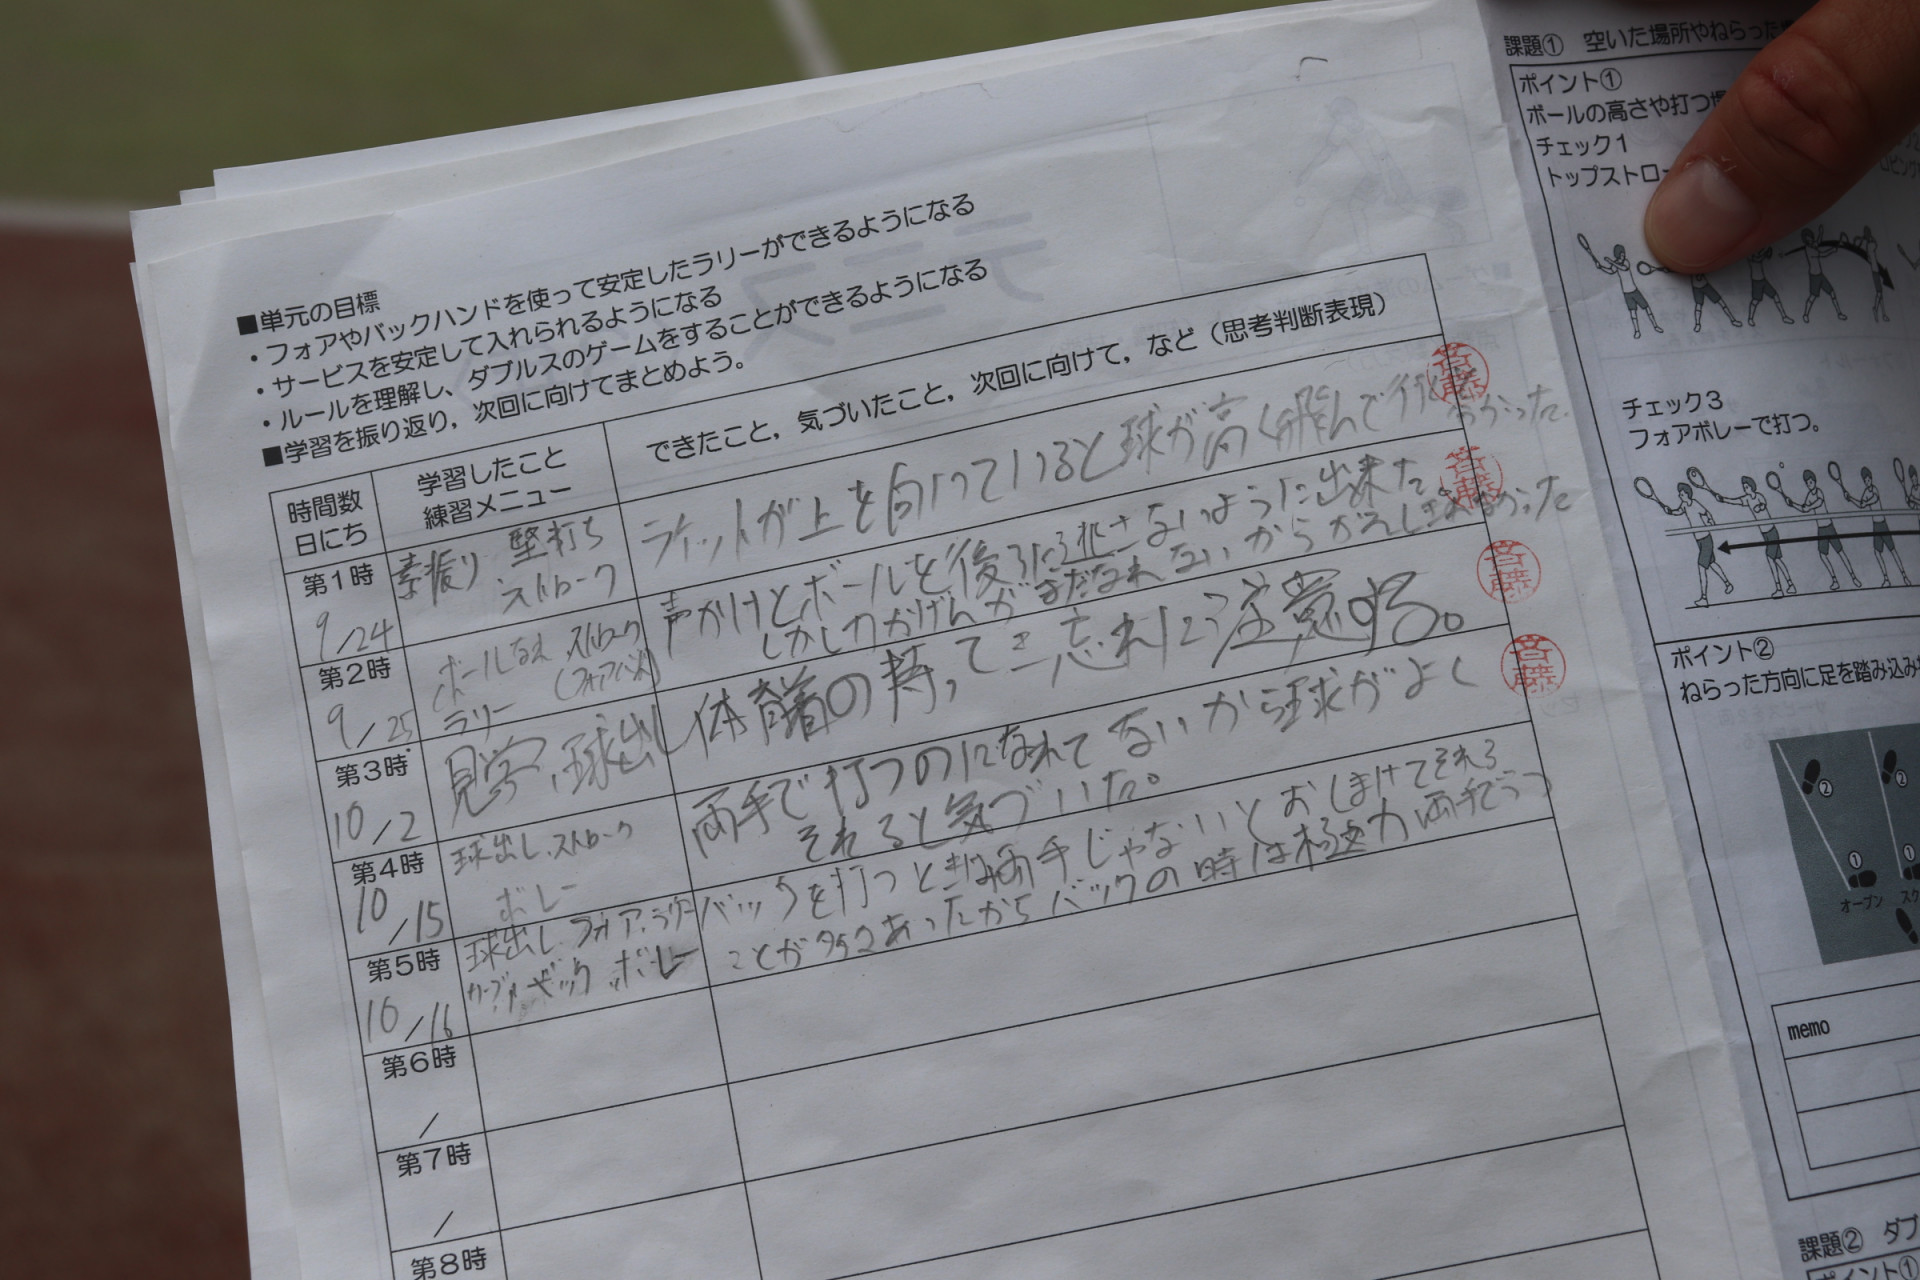 ■単元の目標
・フォアやバックハンドを使って安定したラリーができるようになる
・サービスを安定して入れられるようになる
・ルールを理解し、ダブルスのゲームをすることができるようになる
■学習を振り返り，次回に向けてまとめよう。
時間数
日にち
学習したこと
練習メニュー
できたこと，気づいたこと，次回に向けて，など（思考判断表現）
第1時
9/24
素振り 壁打ち
ストローク
ラケットが上を向いていると球が高く飛んで行く
斉藤
第2時
9/25
ストローク
ラリー
声かけとボールを後ろに逃さないように出来た
しかし力かげんがまだなれないから
斉藤
第3時
10/2
見学、球出し
体育着の持ってき忘れに注意する。
斉藤
第4時
10/15
球出し、ストローク
ボレー
両手で打つのになれてないから球がよく
それると気づいた。
斉藤
第5時
10/16
球出し フォア
バック ボレー
バックを打つときは両手じゃないとおしまけてそれる
ことが多々あったからバックの時は極力両手でうつ
第6時
/
第7時
/
第8時
課題① 空いた場所やねらった
ポイント①
ボールの高さや打つ
チェック1
トップストロー
チェック3
フォアボレーで打つ。
ポイント②
ねらった方向に足を踏み込み
②
②
①
①
オープン
スク
memo
課題② ダブ
ポイント①